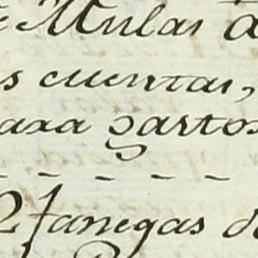 Mulas
cuentas,
para gastos
2 fanegas de